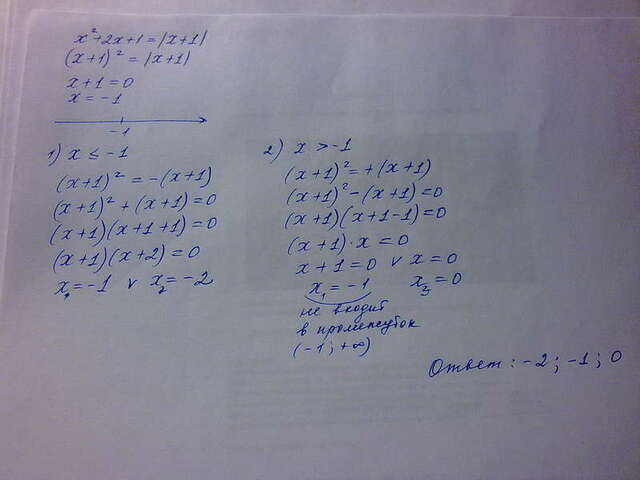 x²+2x+1=|x+1|
(x+1)²=|x+1|
x+1=0
x=-1
-1
1) x ≤ -1
(x+1)²=-(x+1)
(x+1)²+(x+1)=0
(x+1)(x+1+1)=0
(x+1)(x+2)=0
x₁=-1 v x₂=-2
2) x > -1
(x+1)²=+(x+1)
(x+1)²-(x+1)=0
(x+1)(x+1-1)=0
(x+1)·x=0
x+1=0 v x=0
x₁=-1 x₃=0
не входит
в промежуток
(-1;+∞)
Ответ: -2; -1; 0